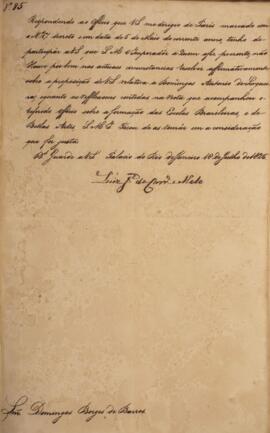 Nº 85
Respondendo ao Officio que VS. me dirigio de Paris marcado com
o Nº 17 secreto com data de 6 de Maio do corrente anno, tenho de
participar a VS. que S. M. o Imperador a Quem foi presente, não
Houve por bem nas actuaes circunstancias resolver affirmativamente
sobre a proposição de VS. relativa a Domingos Antonio de Sequeira
e quanto as reflexoens contidas na Nota que acompanhou o
referido Officio sobre a formação das Escolas Brasileiras, e de
Bellas Artes, S. M. I. Fará de as tomar em a consideração
que for justa.
Ds. Guarde a VS. Palacio do Rio de Janeiro 19 de Julho de 1826
Snr. Domingos Borges de Barros